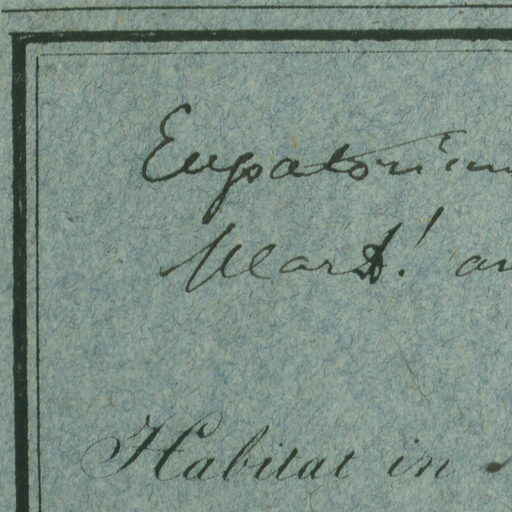 Eupatorium
Mart! an
Habitat in